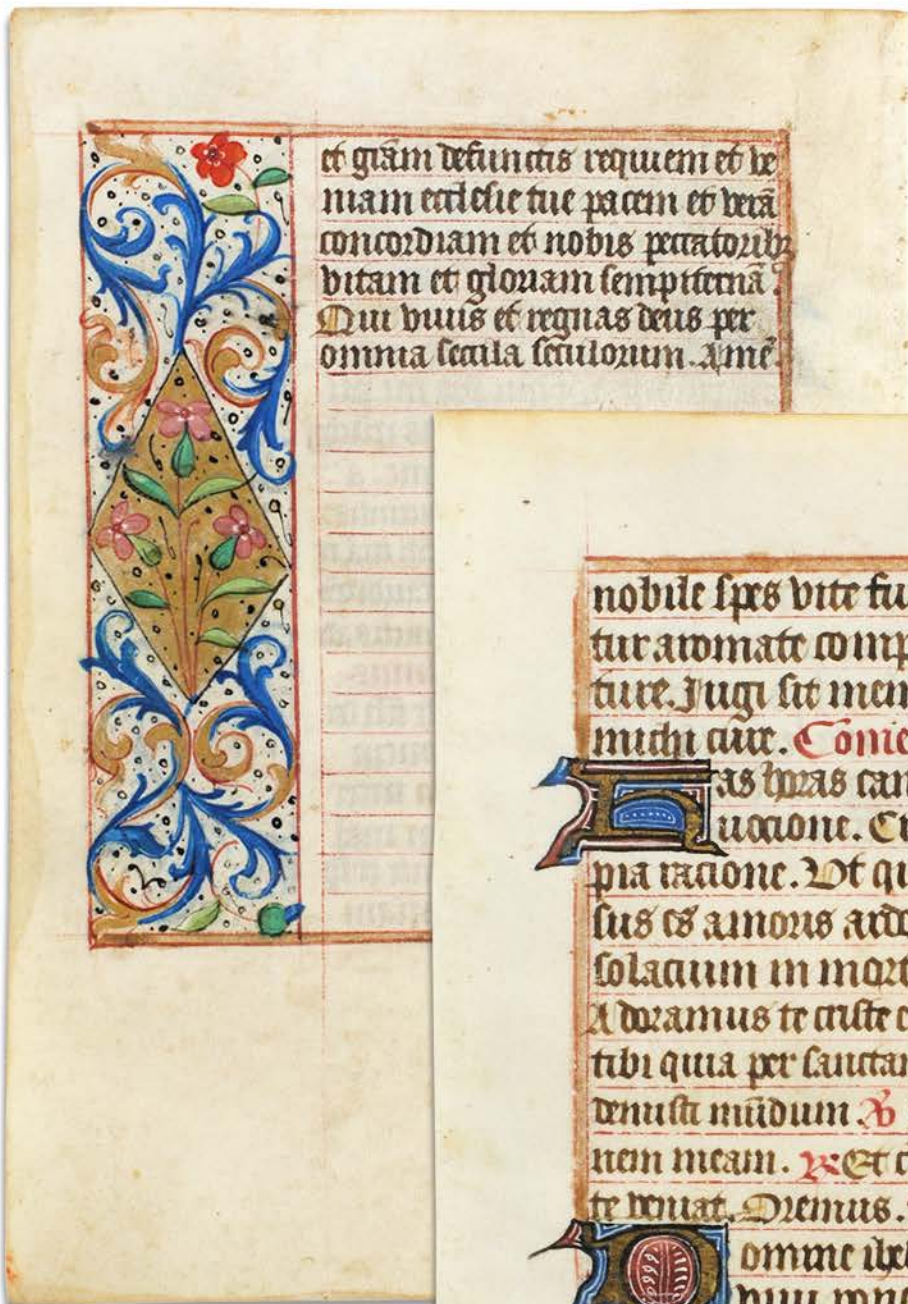 et grãm defunctis requiem et ve
niam ecclesie tue pacem et verã
concordiam et nobis peccatoribꝫ
vitam et gloriam sempiternã.
Qui viuis et regnas deus per
omnia secula seculorum. Amẽ.
nobile spes vite fu
tur aromate comp
ture. Jugi sit mem
michi cure. Comе
as horas can
uocione. Cr
pia racione. Vt qu
sus es amoris ardo
solacium in mort
Adoramus te criste e
tibi quia per sanctam
demisti mũdum.
nem meam. Et c
te veniat. Oremus.
Domine ihe